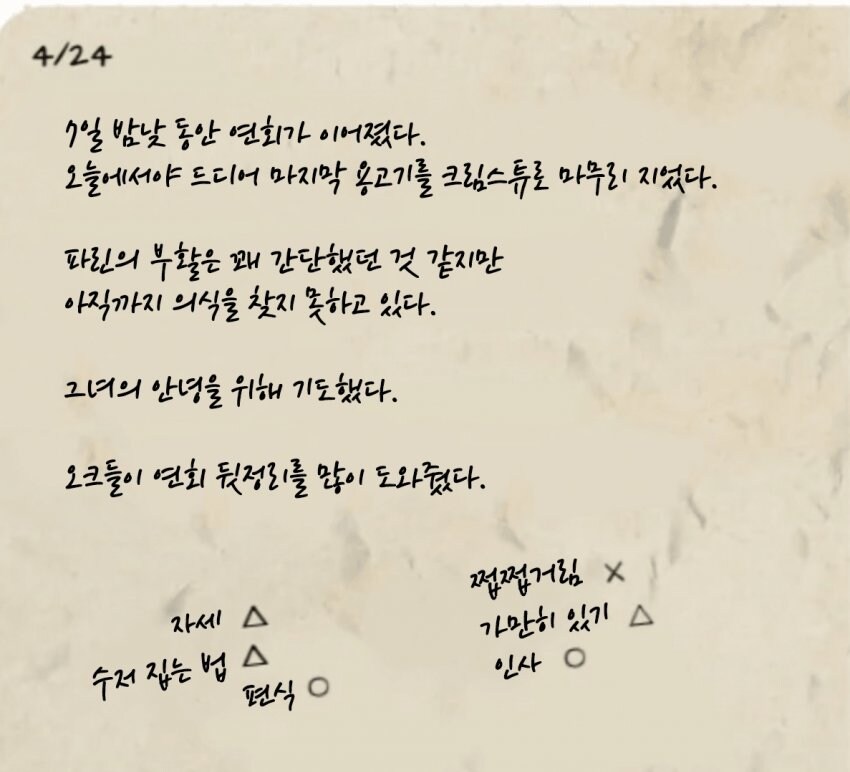 4/24
7일 밤낮 동안 연회가 이어졌다.
오늘에서야 드디어 마지막 용고기를 크림스튜로 마무리 지었다.
파린의 부활은 꽤 간단했던 것 같지만
아직까지 의식을 찾지 못하고 있다.
그녀의 안녕을 위해 기도했다.
오크들이 연회 뒷정리를 많이 도와줬다.
자세 △
수저 집는 법 △
편식 ○
쩝쩝거림 ×
가만히 있기 △
인사 ○